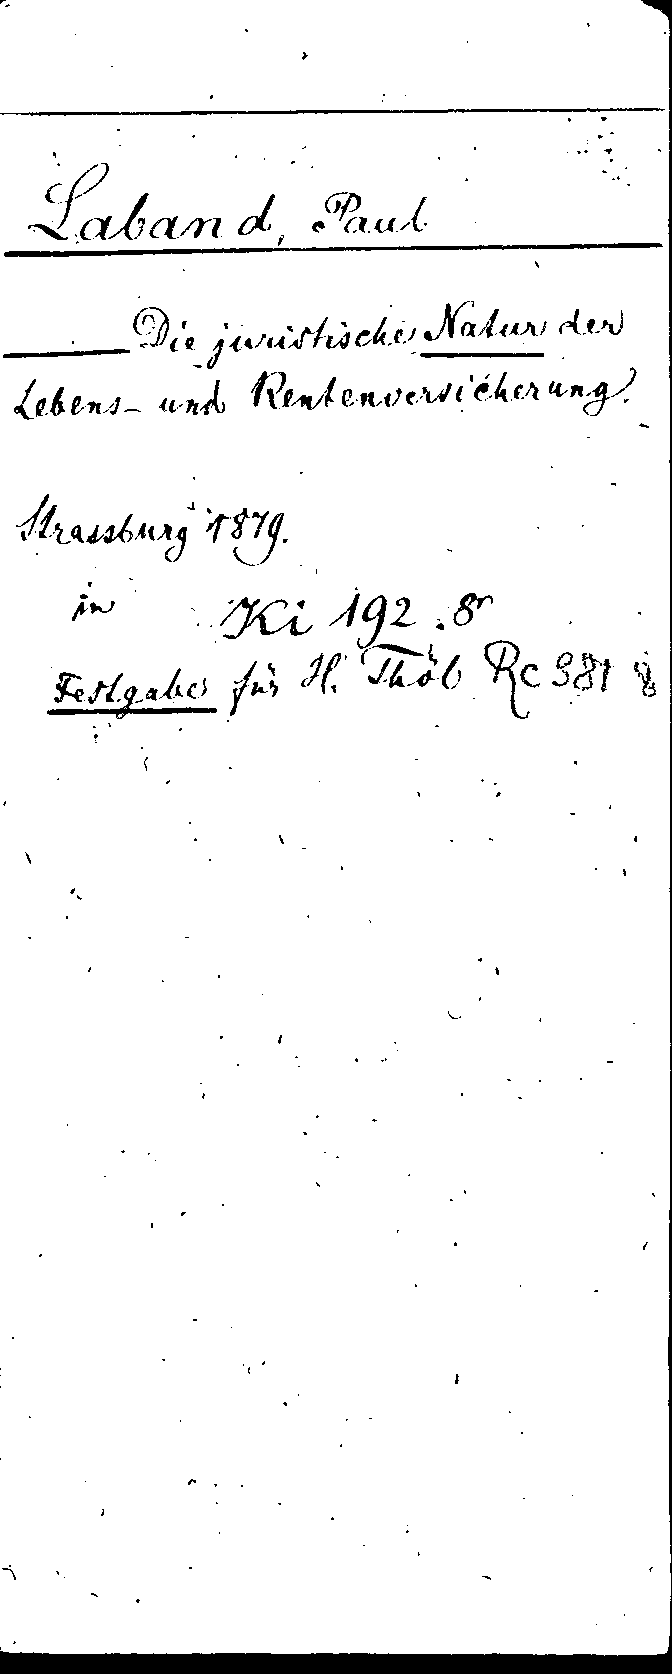 Laband, Paul
Die juristische Natur der
Lebens- und Rentenversicherung.
Strassburg 1879.
in Ki 192.8r
Festgabe für H. Thöl Rc 381 8